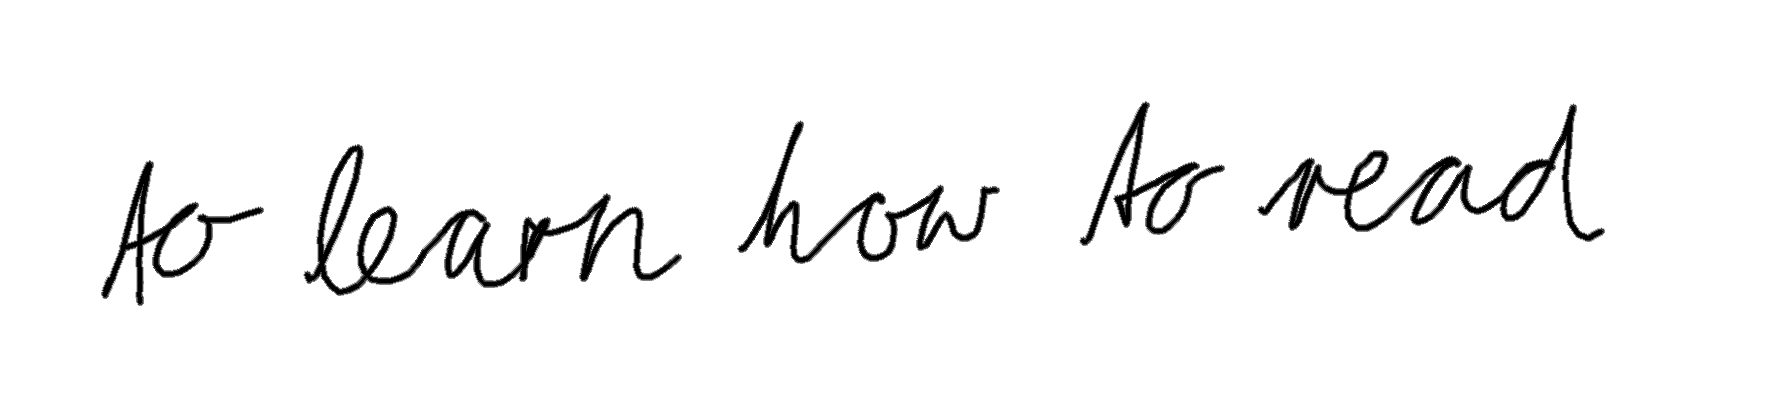 to learn how to read